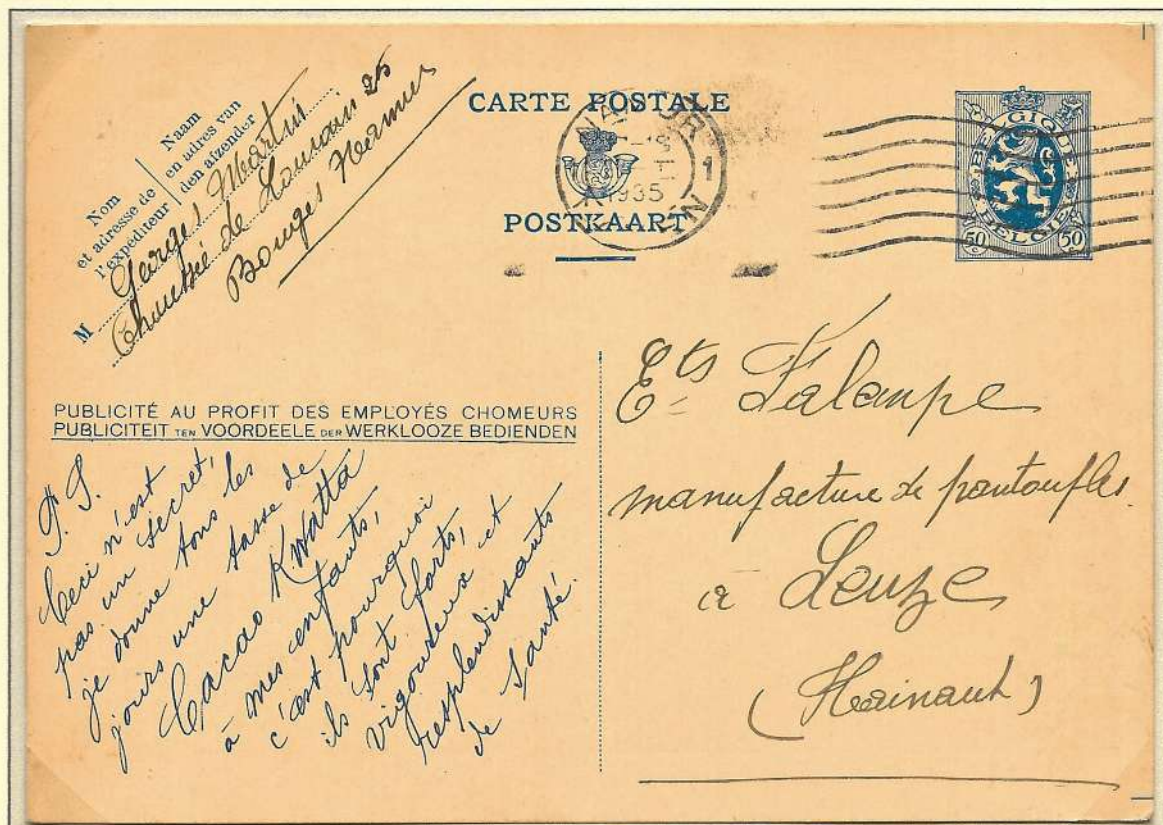 CARTE POSTALE
POSTKAART
Nom
et adresse de
l'expéditeur
Naam
en adres van
den afzender
M Georges Martin
Chaussée de Louvain 25
Bouges Namur
NAMUR
1
1935
NAMEN
BELGIQUE
BELGIË
50 c 50 c
PUBLICITÉ AU PROFIT DES EMPLOYÉS CHOMEURS
PUBLICITEIT TEN VOORDEELE DER WERKLOOZE BEDIENDEN
P.S.
Ceci n'est
pas un secret,
je donne tous les
jours une tasse de
Cacao Kwatta
à mes enfants,
c'est pourquoi
ils sont forts,
vigoureux et
resplendissants
de santé.
Ets
manufacture de pantoufles
à Leuze
(Hainaut)